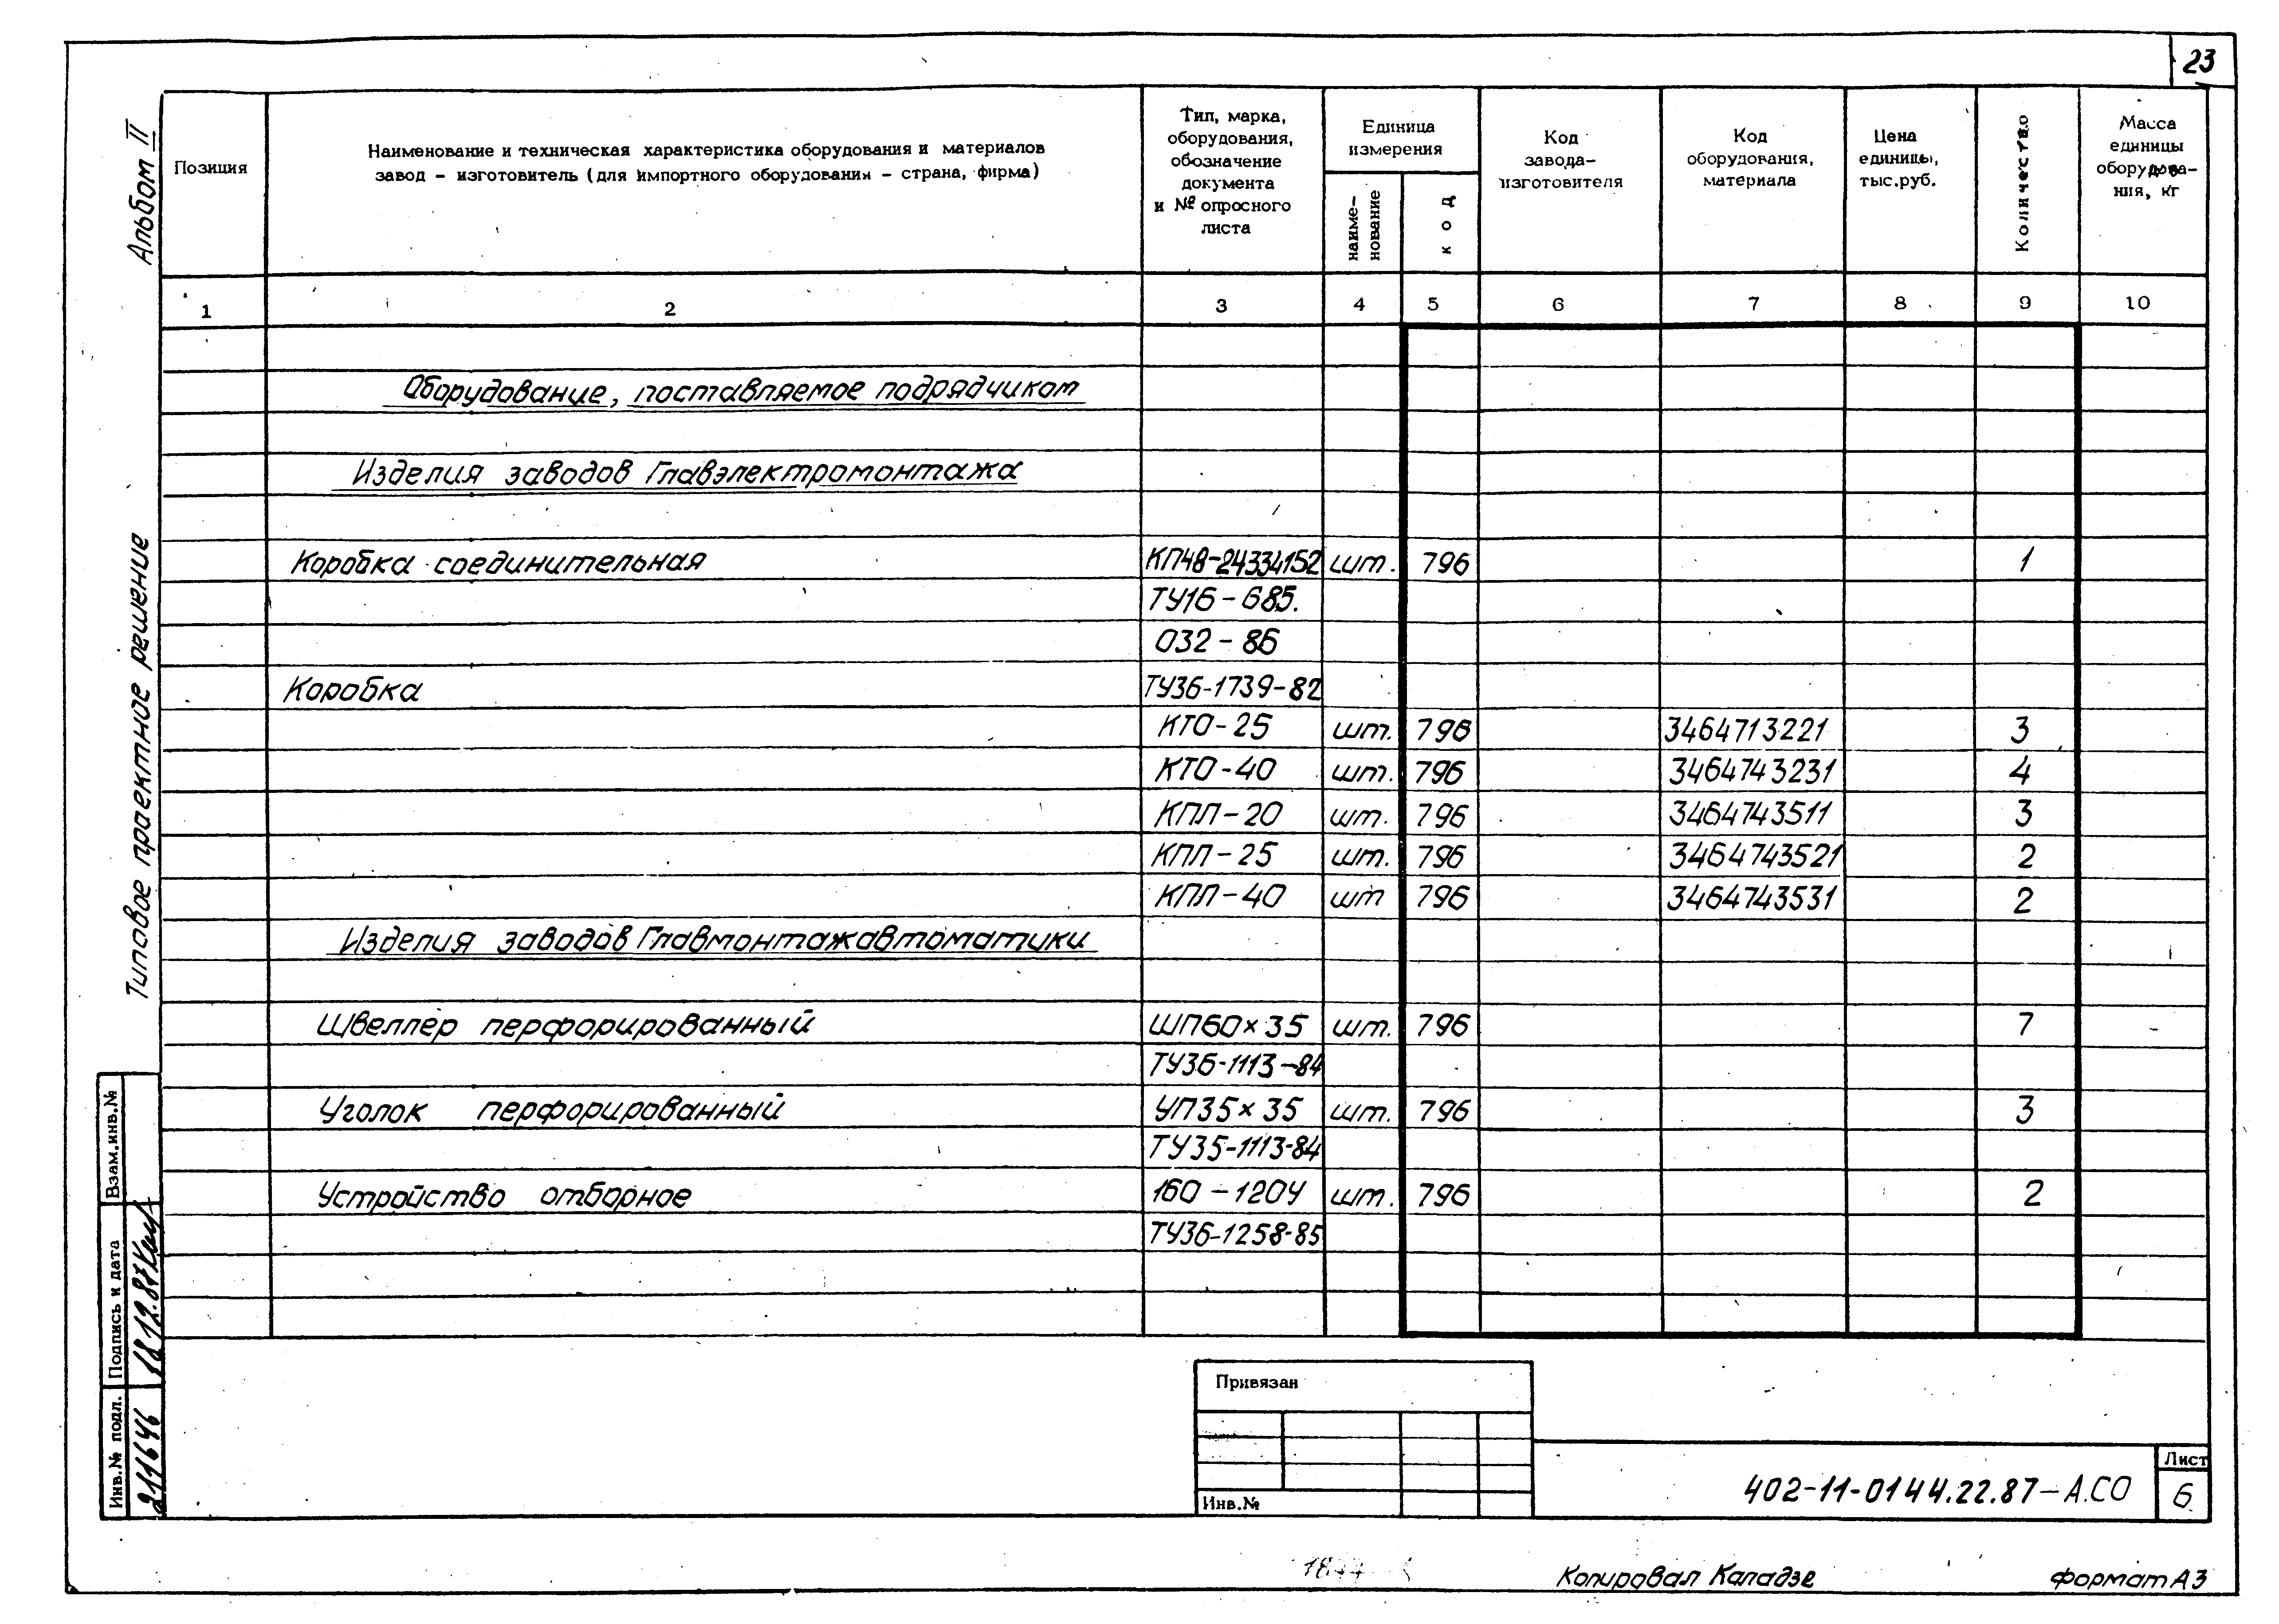 23
Альбом II
Типовое проектное решение
Позиция
Наименование и техническая характеристика оборудования и материалов
завод – изготовитель (для импортного оборудования – страна, фирма)
Тип, марка,
оборудования,
обозначение
документа
и № опросного
листа
Единица
измерения
наиме-
нование
код
Код
завода-
изготовителя
Код
оборудования,
материала
Цена
единицы,
тыс.руб.
Количество
Масса
единицы
оборудова-
ния, кг
1 2 3 4 5 6 7 8 9 10
Оборудование, поставляемое подрядчиком
Изделия заводов Главэлектромонтажа
Коробка соединительная КП48-24334152 шт. 796 1
ТУ16-685.
032-86
Коробка ТУ36-1739-82
КТО-25 шт. 796 3464713221 3
КТО-40 шт. 796 3464743231 4
КПЛ-20 шт. 796 3464743511 3
КПЛ-25 шт. 796 3464743521 2
КПЛ-40 шт 796 3464743531 2
Изделия заводов Главмонтажавтоматики
Швеллер перфорированный ШП60×35 шт. 796 7
ТУ36-1113-84
Уголок перфорированный УП35×35 шт. 796 3
ТУ35-1113-84
Устройство отборное 160-120У шт. 796 2
ТУ36-1258-85
Взам.инв.№
Подпись и дата
18.12.87
Инв.№ подл.
2111646
Привязан
Инв.№
402-11-0144.22.87-А.СО
Лист
6
Копировал Каладзе
формат А3